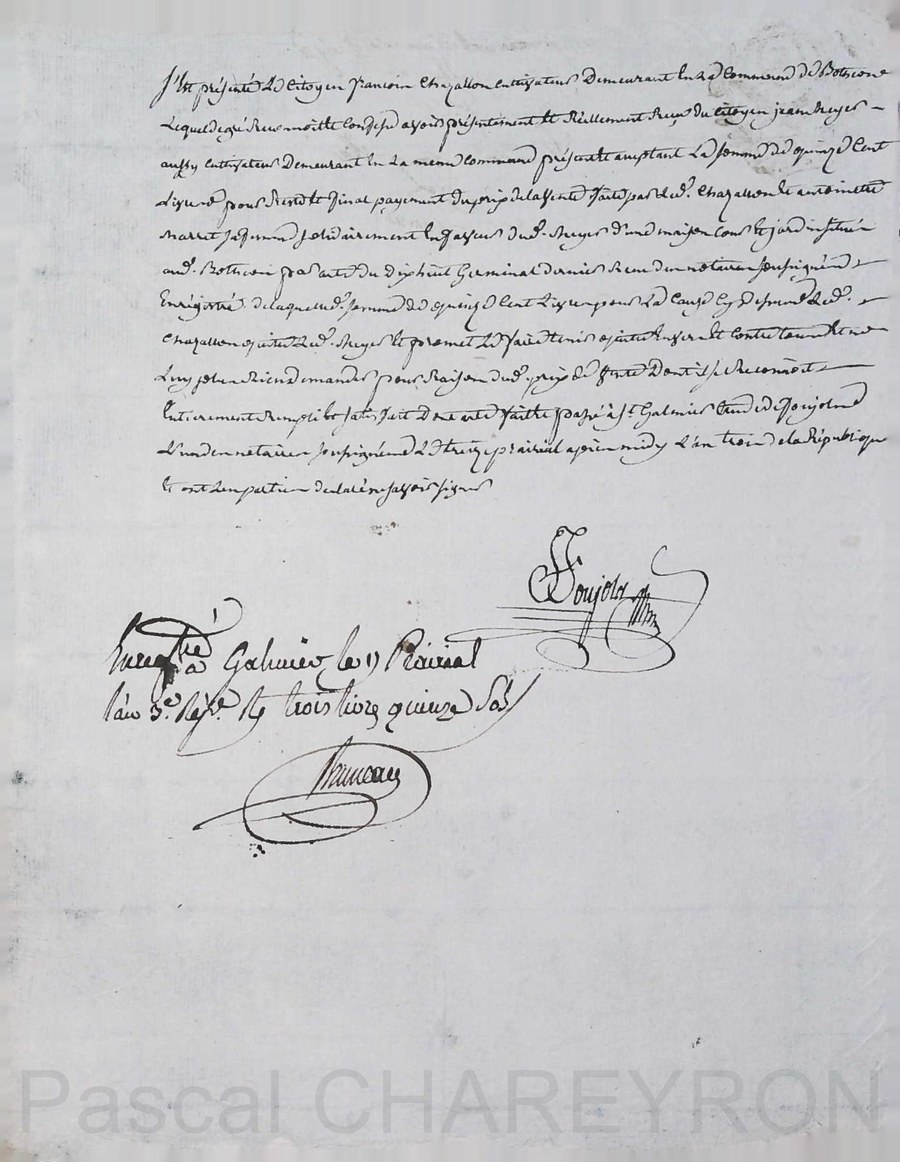 S'est présenté Le Citoyen françois Chazallon Cultivateur Demeurant En La Commune de Bothéon
Lequel de gré Reconnoit et Confesse avoir présentement Et Réellement Reçu du Citoyen jean
aussy Cultivateur Demeurant En La meme Commune présent Et acceptant La somme de quinze Cent
Livres pour Reste Et final payement du prix de la vente faite par Led. Chazallon Et antoinette
Marret sa femme solidairement En faveur dud. d'une maison Cour Et jardin situés
aud. Bothéon par acte du dix huit Germinal dernier Recu du notaire soussigné
Enregistré de laquelle d. somme de quinze Cent Livres pour La Cause Led.
Chazallon quitte Led. Et promet Le faire tenir quitte Envers Et Contre tous Et ne
Luy jolen Rien demander pour Raison dud. prix de vente Dont il se Reconnoit
Entierement Rempli Et satisfait Dont acte fait Et passé à St. Galmier Etude de Poujol
L'un des notaires soussigné Le treize prairial après midy L'an trois de la République
Et ont Les parties déclaré ne savoir signer
Poujol
Enregtré à Galmier le 17 Prairial
l'an 3e. Rep. Rç trois livres quinze Sols